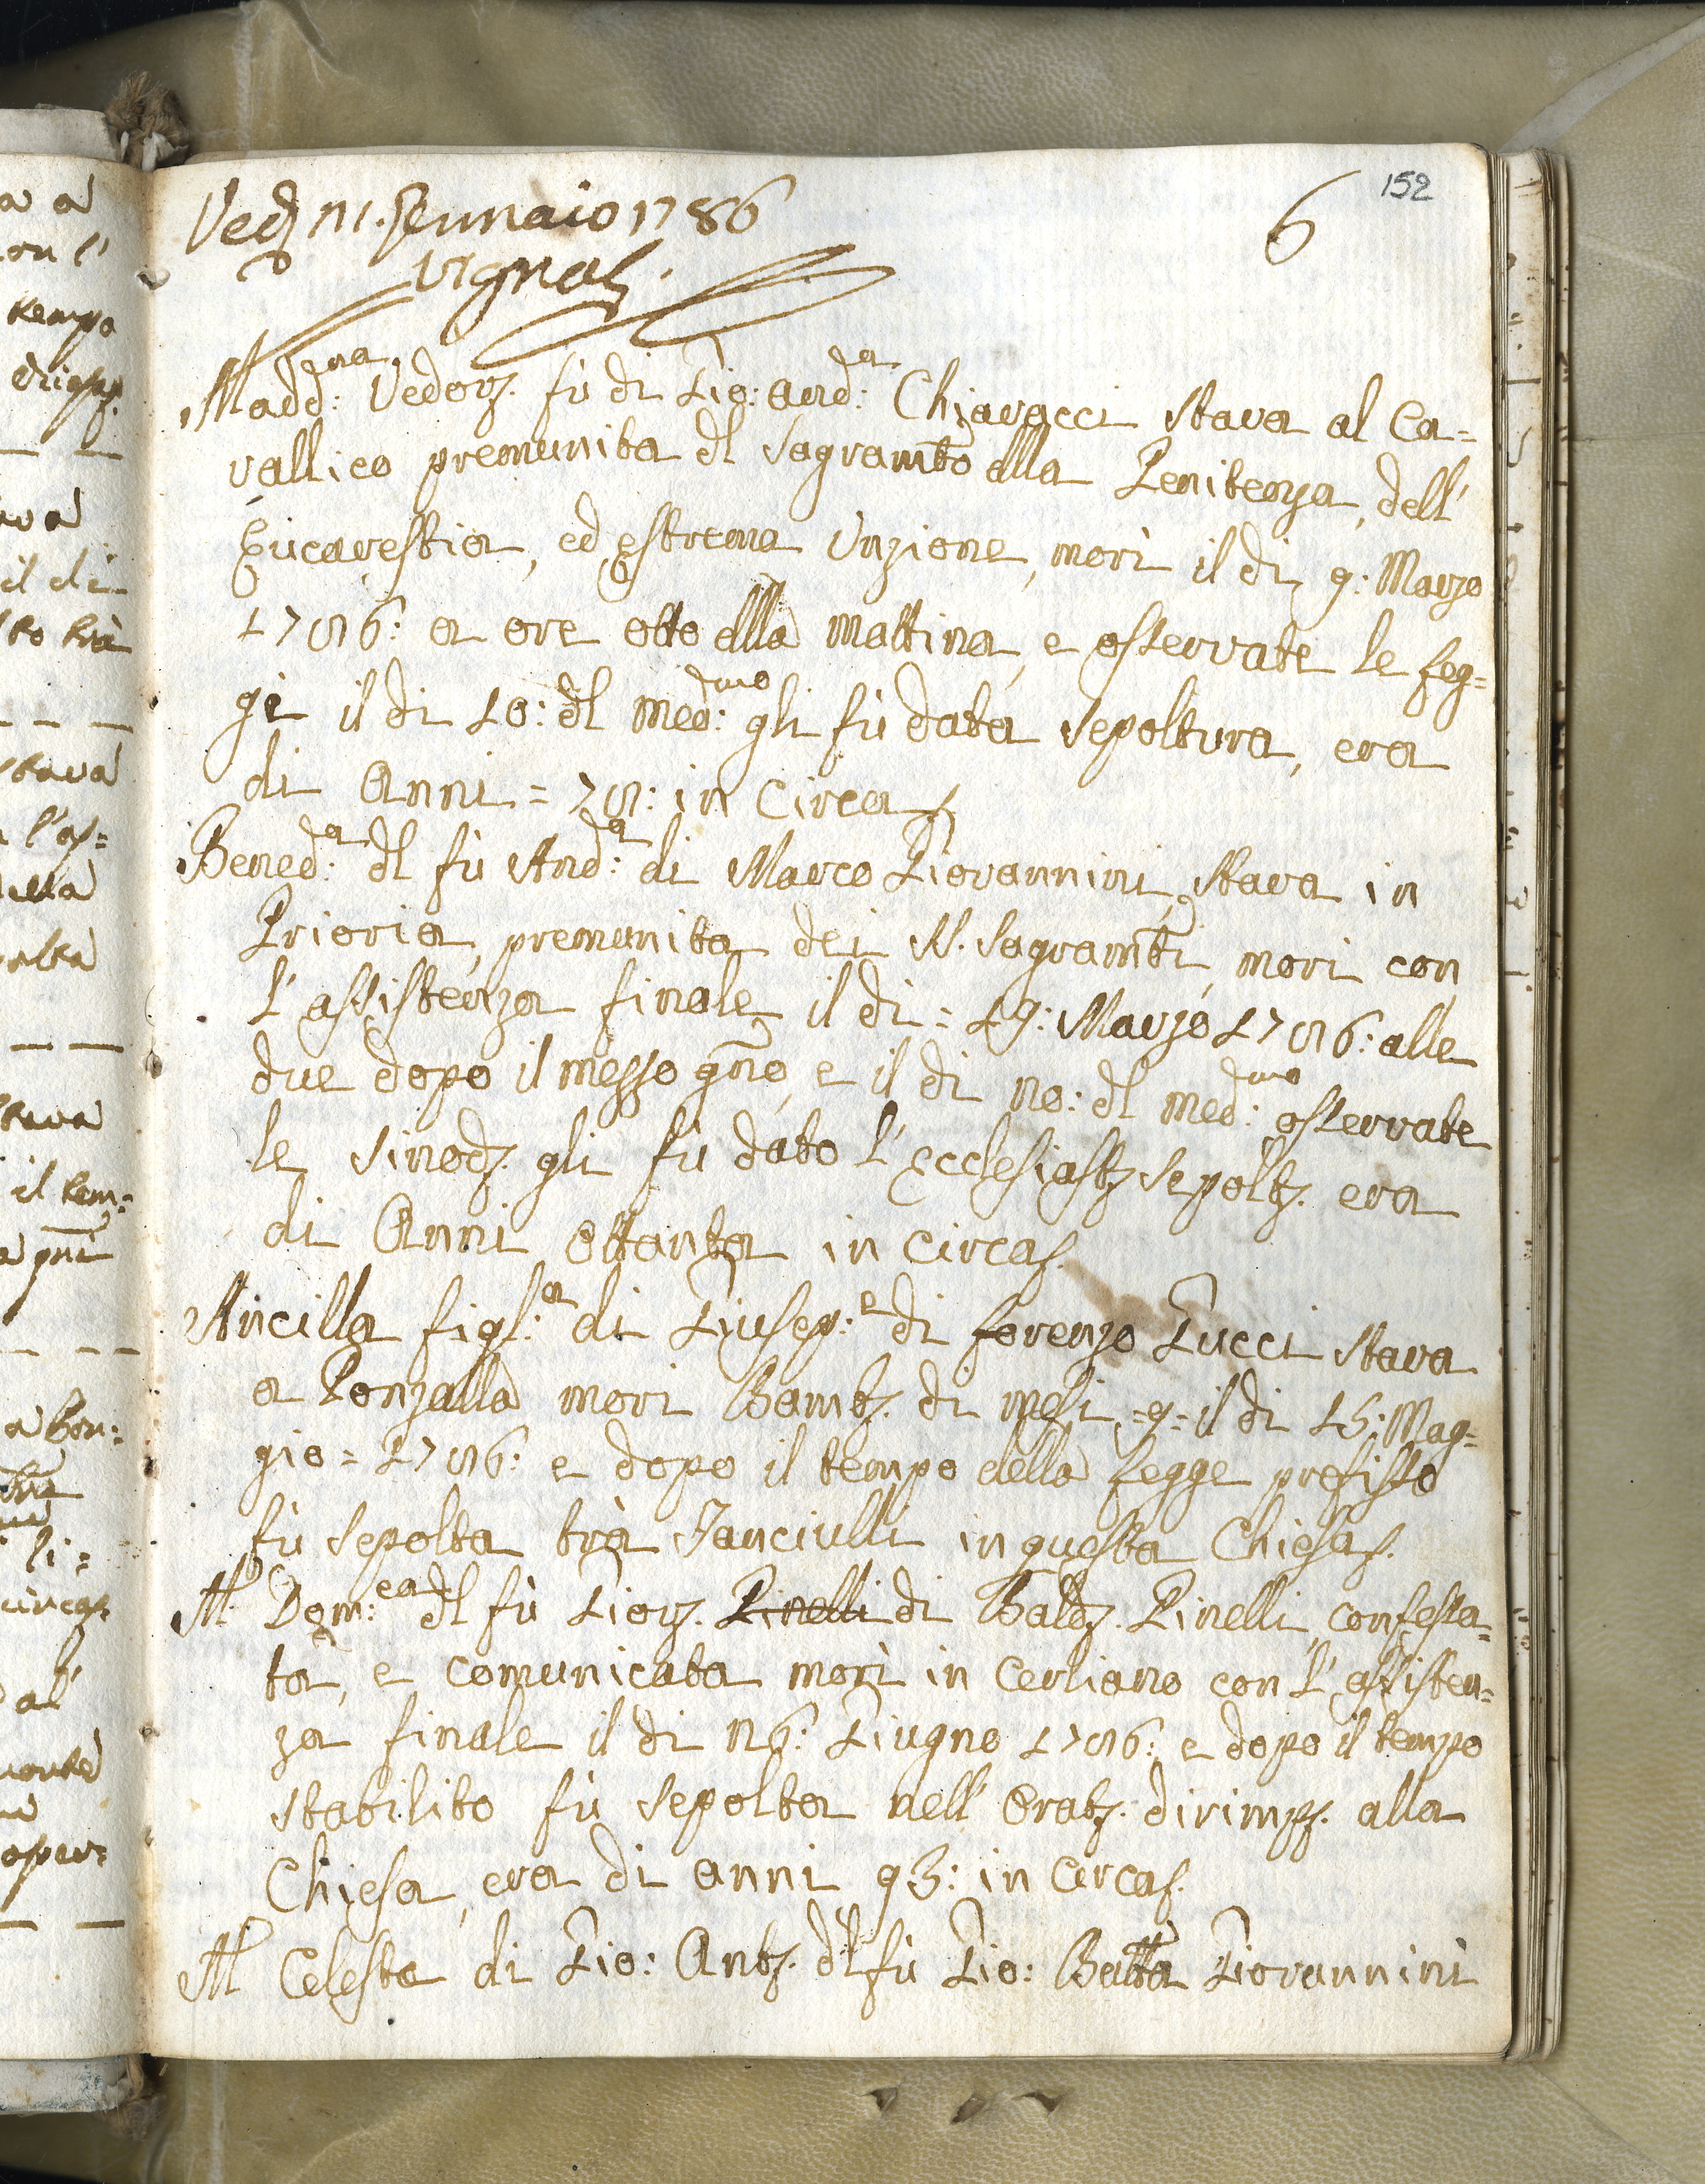 152
6
Gennaio 1786
Madd:na Vedov. fù di Gio: And:a Chiavacci stava al Ca=
vallico premunita dl Sagramto dlla Penitenza, dell'
Eucarestia, ed estrema Unzione, morì il di 9: Marzo
1786: a ore otto dlla mattina, e osservate le Leg=
gi il di 10: dl med:mo gli fù data sepoltura, era
di Anni = 78: in circa
Bened:a dl fù And:a di Marco Giovannini, stava in
Prioria, premunita dei SS. Sagramti, morì con
l'assistenza finale il di = 19: Marzo 1786: alle
due dopo il mezzo gno, e il di 20: dl med:mo osservate
le sinod. gli fù dato l'Ecclesiast. sepolt. era
di Anni ottanta in circa.
Ancilla figl:a di Giusep:e di Lorenzo Gucci stava
a Ponzalla morì Bamb. di mesi =9= il di 15: Mag=
gio = 1786: e dopo il tempo della Legge prefisso
fù sepolta trà Fanciulli in questa Chiesa.
M. Dom:ca dl fù Giov. Pinelli di Bald. Pinelli, confessa=
ta, e comunicata morì in Cerliano con l'assisten=
za finale il di 26: Giugno 1786: e dopo il tempo
stabilito fù sepolta nell'Orat. dirimp. alla
Chiesa, era di anni 93: in circa.
M Celeste di Gio: Ant. dl fù Gio: Batta Giovannini